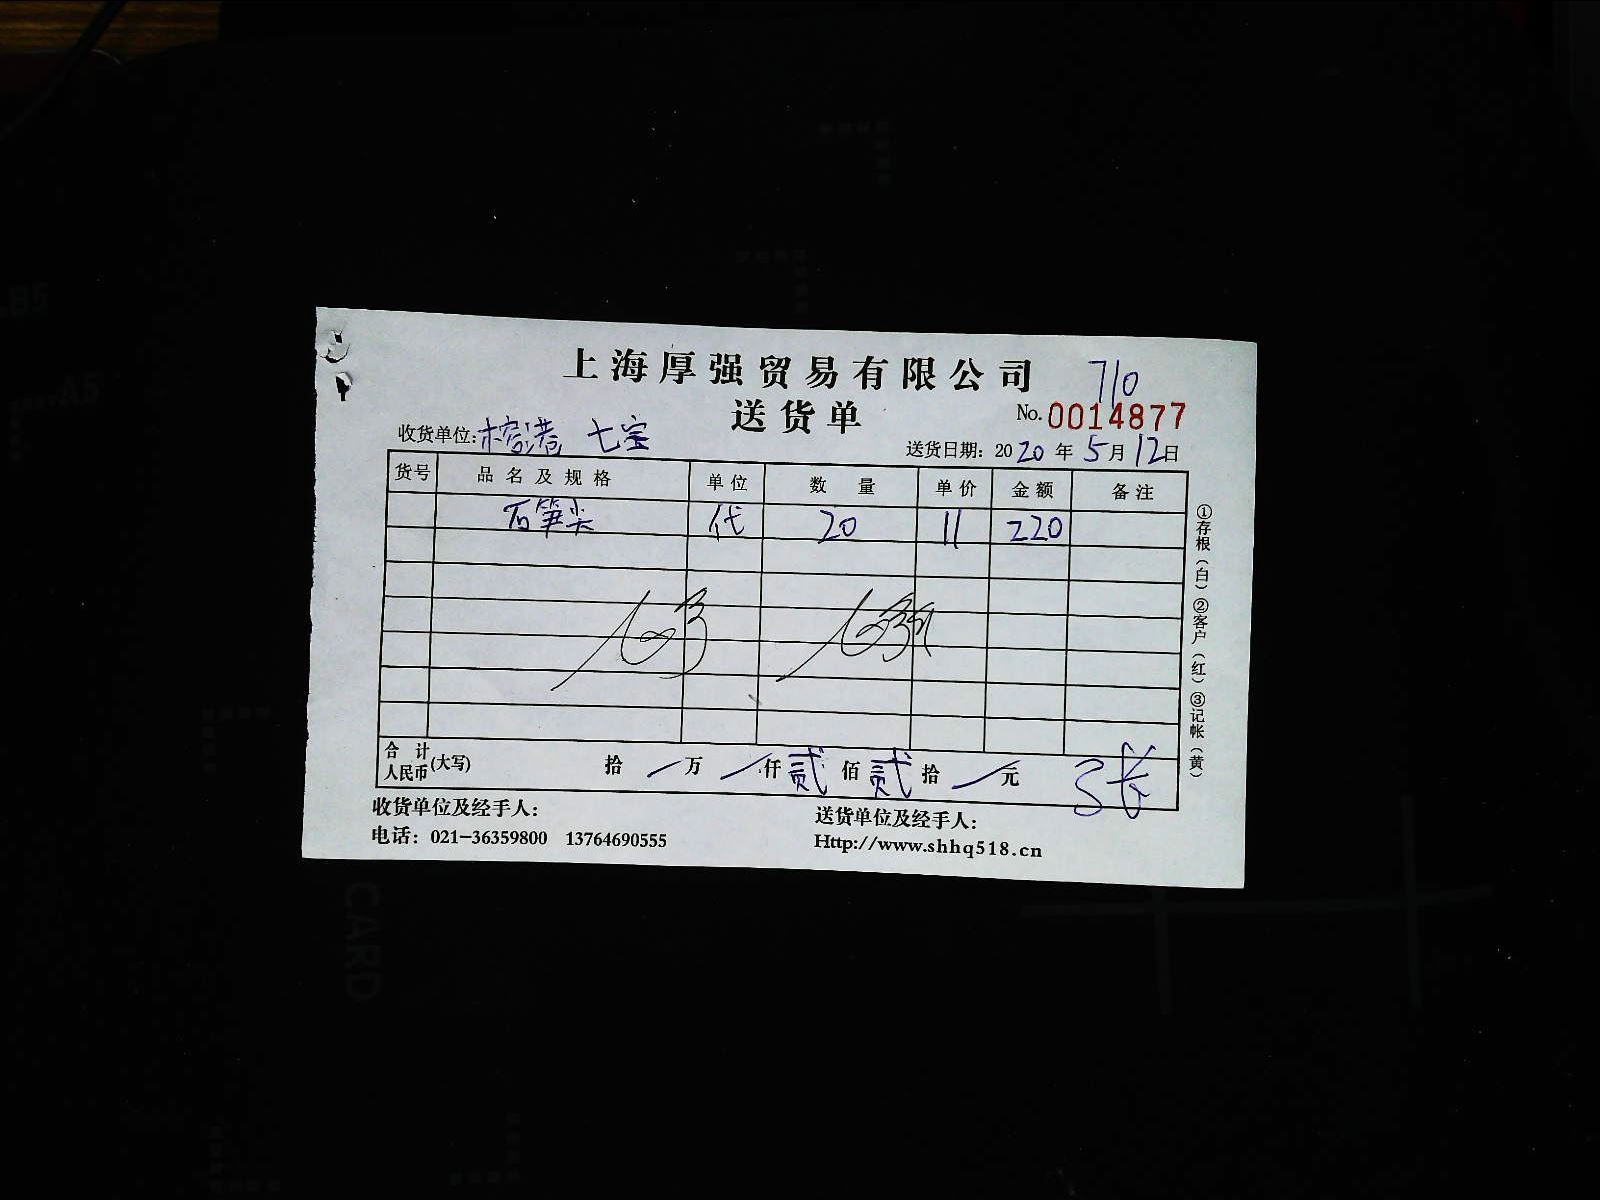 上海厚强贸易有限公司
710
送货单
No. 0014877
收货单位:榕港 七宝
送货日期: 2020 年 5 月 12 日
货号 品名及规格 单位 数 量 单价 金额 备注
石笋尖 代 20 11 220
合计人民币(大写) 拾 / 万 / 仟 贰 佰 贰 拾 / 元
3张
收货单位及经手人:
送货单位及经手人:
电话: 021-36359800 13764690555
Http://www.shhq518.cn
①存根(白)②客户(红)③记帐(黄)
B5
A5
CARD